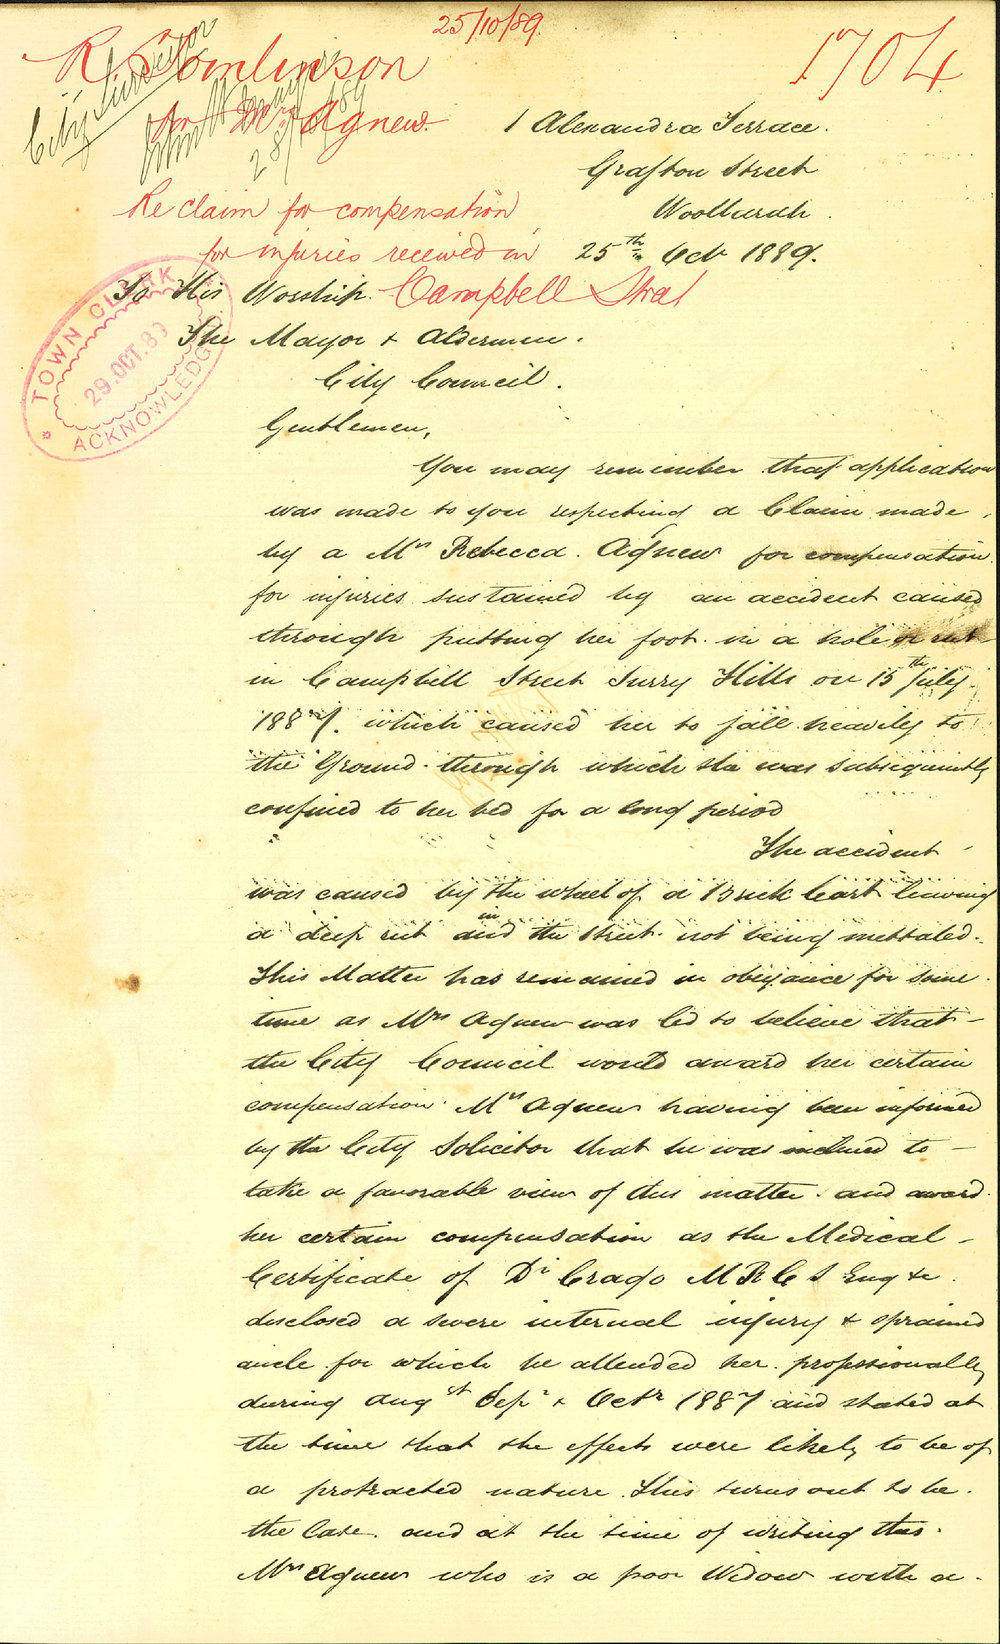 25/10/89.
R Tomlinson
1704
for Mrs Agnew.
City Surveyor
28/
89
1 Alexandra Terrace.
Grafton Street
Woollurah.
Re claim for compensation
for injuries received in
Campbell Street
25th Octr 1889.
TOWN CLERK
29.OCT.89
ACKNOWLEDGED
To His Worship.
The Mayor & Aldermen.
City Council.
Gentlemen,
You may remember that application
was made to you respecting a Claim made
by a Mrs Rebecca. Agnew for compensation
for injuries sustained by an accident caused
through putting her foot in a hole or rut
in Campbell Street Surry Hills on 15th July
1887. which caused her to fall heavily to
the Ground. through which she was subsequently
confined to her bed for a long period
The accident
was caused by the wheel of a Brick Cart leaving
a deep rut in and the street. not being mettaled.
This Matter has remained in obeyance for some
time as Mrs Agnew was led to believe that
the City Council would award her certain
compensation. Mrs Agnew having been informed
by the City Solicitor that he was inclined to
take a favorable view of this matter. and award
her certain compensation as the Medical
Certificate of Dr Crago M R C S Eng &c.
disclosed a severe internal injury & sprained
ancle for which he attended her. professionally
during Augst Sepr & Octr 1887 and stated at
the time that the effects were likely to be of
a protracted nature. This turns out to be.
the Case. and at the time of writing this.
Mrs Agnew who is a poor Widow with a.